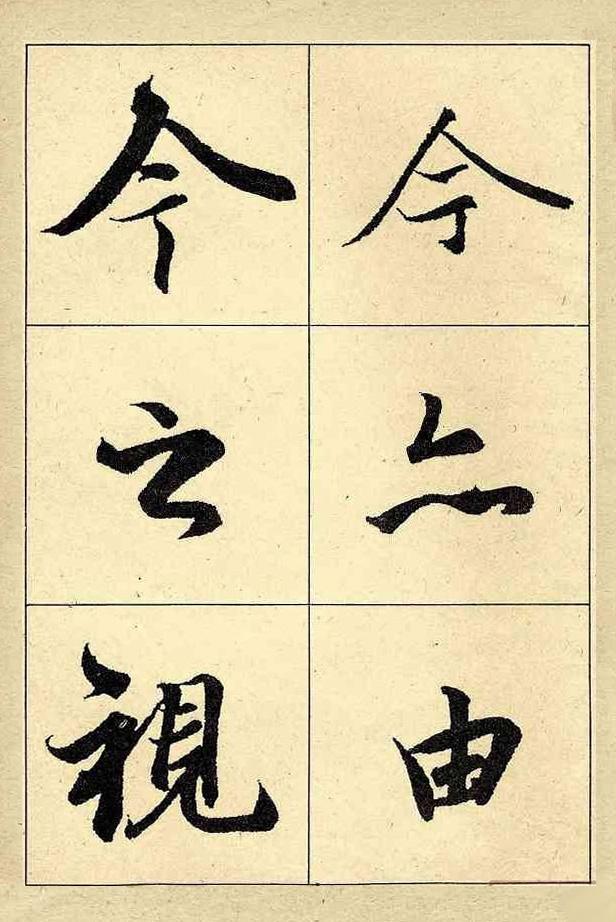 今亦由
今之視